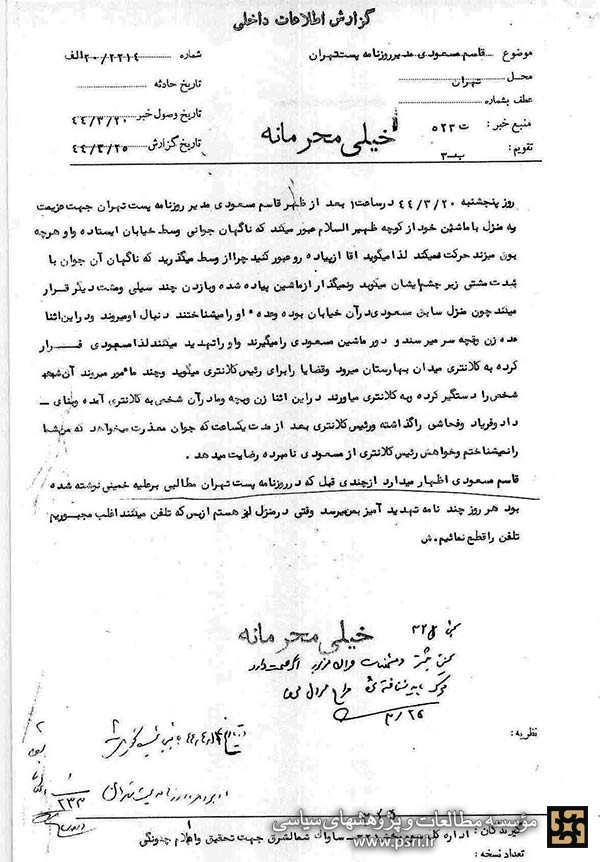 گزارش اطلاعات داخلی
موضوع قاسم مسعودی مدیر روزنامه پست تهران
شماره ۲۰/۲۲۱۴ الف
محل تهران
تاریخ حادثه
عطف بشماره
تاریخ وصول خبر ۴۴/۳/۲۰
منبع خبر : ت ۵۲۳
تاریخ گزارش ۴۴/۳/۲۵
تقویم : ب-۳
خیلی محرمانه
روز پنجشنبه ۴۴/۳/۲۰ درساعت ۱ بعد از ظهر قاسم مسعودی مدیر روزنامه پست تهران جهت عزیمت
به منزل با ماشین خود از کوچه ظهیر السلام عبور میکند که ناگهان جوانی وسط خیابان ایستاده و او هرچه
بوق میزند حرکت نمیکند لذا میگوید اقا ازپیاده رو عبور کنید چرا از وسط میگذرید که ناگهان آن جوان با
شدت مشتی زیر چشم ایشان میکوبد ونمیگذار ازماشین پیاده شده وبا زدن چند سیلی ومشت دیگر قرار
میکند چون منزل سابق مسعودی درآن خیابان بوده وعده او را میشناختند دنبال او میروند ودراین اثنا
عده زن وبچه سر میرسند و دور ماشین مسعودی را میگیرند واو را تهدید میکنند لذا مسعودی فرار
کرده به کلانتری میدان بهارستان میرود وقضایا رابرای رئیس کلانتری میگوید وچند مأمور میروند آن شخص
شخص را دستگیر کرده وبه کلانتری میاورند دراین اثنا زن وبچه ومادر آن شخص به کلانتری آمده وبنای -
داد وفریاد وفحاشی راگذاشته ورئیس کلانتری بعد از مدت یکساعت که جوان معذرت میخواهد که من شما
را نمیشناختم وخواهش رئیس کلانتری از مسعودی نامبرده رضایت میدهد .
قاسم مسعودی اظهار میدارد ازچندی قبل که درروزنامه پست تهران مطالبی برعلیه خمینی نوشته شده
بود هر روز چند نامه تهدید آمیز بمن میرسد وقتی درمنزل هستم ازبس که تلفن میکنند اغلب مجبوریم
تلفن را قطع نمائیم . ش
خیلی محرمانه
نظریه :
۲۳۳
گیرندگان : اداره کل سوم بخش ۳۲۱ - ساواک شمالشرق جهت تحقیق واعلام چگونگی
تعداد نسخه :
مؤسسه مطالعات و پژوهشهای سیاسی
www.psri.ir